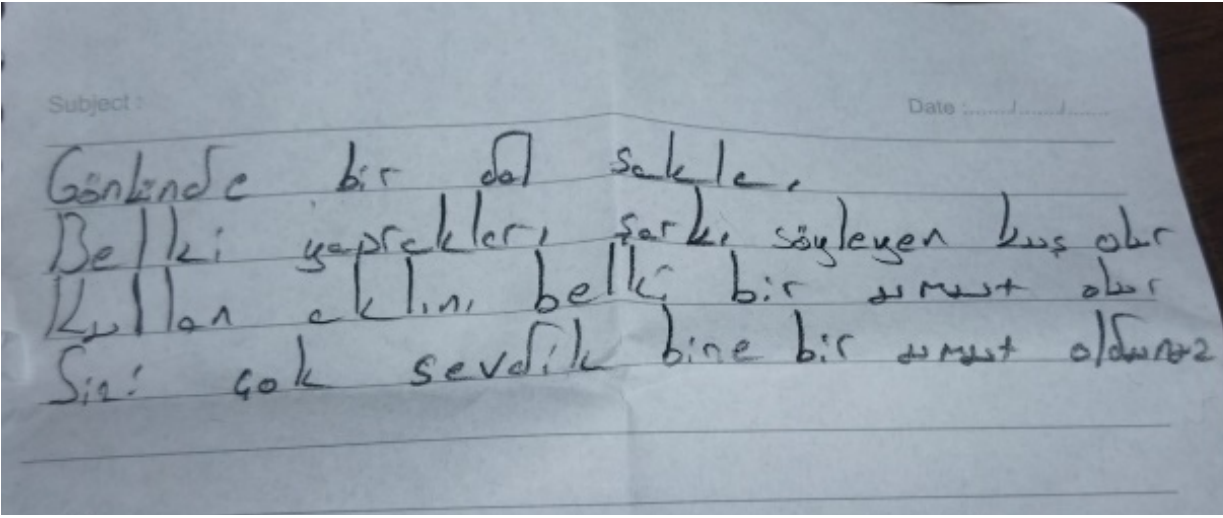 Subject : Date : ....../....../......
Gönlünde bir dal sakla,
Belki yaprakları, şarkı söyleyen kuş olur
Kullan aklını belki bir umut olur
Sizi çok sevdik bine bir umut oldunuz